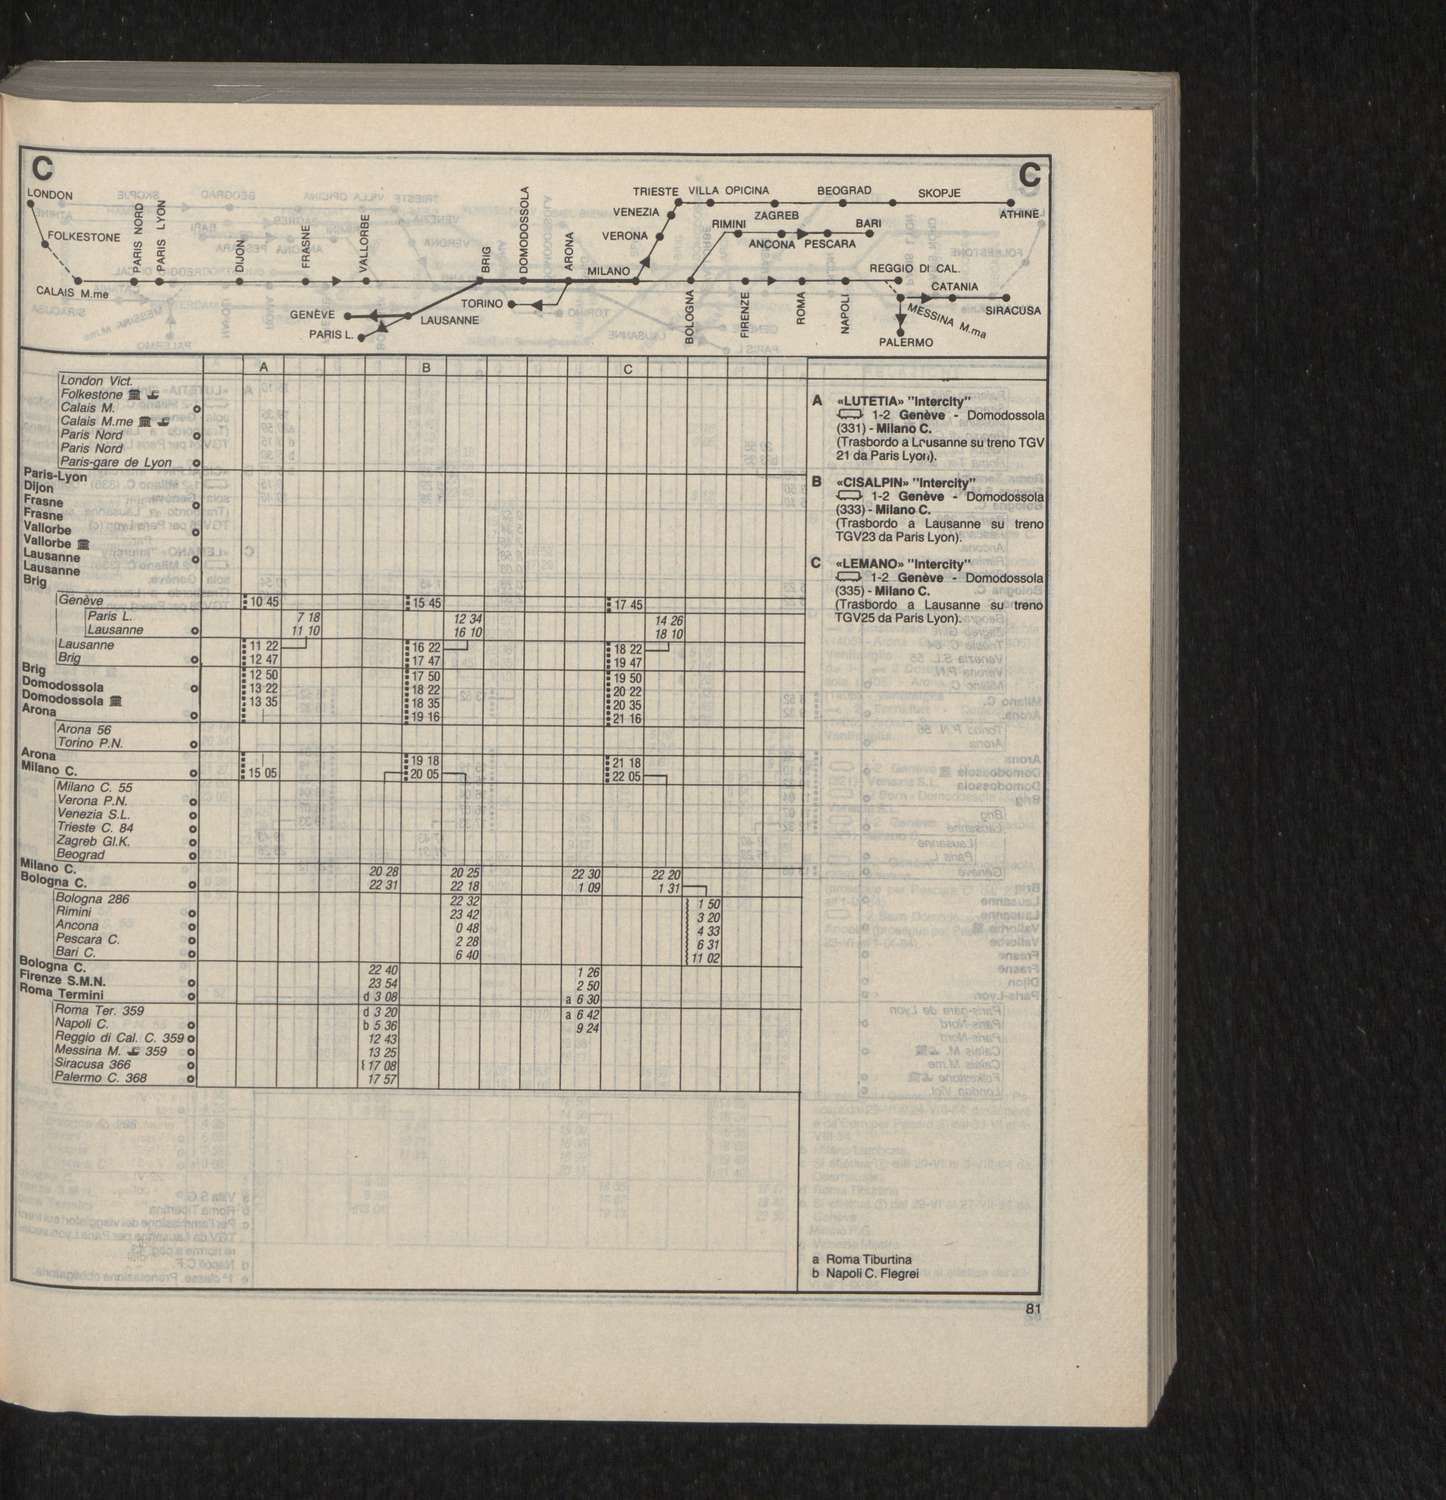 C C
LONDON
FOLKESTONE
CALAIS M.me
PARIS NORD
PARIS LYON
DIJON
FRASNE
VALLORBE
GENÈVE
PARIS L.
LAUSANNE
BRIG
DOMODOSSOLA
ARONA
TORINO
MILANO
VERONA
VENEZIA
TRIESTE
VILLA OPICINA
ZAGREB
BEOGRAD
SKOPJE
ATHINE
RIMINI
ANCONA
PESCARA
BARI
BOLOGNA
FIRENZE
ROMA
NAPOLI
REGGIO DI CAL.
CATANIA
SIRACUSA
MESSINA M.ma
PALERMO
A B C
London Vict.
Folkestone
Calais M.
Calais M.me
Paris Nord
Paris Nord
Paris-gare de Lyon
Paris-Lyon
Dijon
Frasne
Frasne
Vallorbe
Vallorbe
Lausanne
Lausanne
Brig
Genève 10 45 15 45 17 45
Paris L. 7 18 12 34 14 26
Lausanne 11 10 16 10 18 10
Lausanne 11 22 16 22 18 22
Brig 12 47 17 47 19 47
Brig 12 50 17 50 19 50
Domodossola 13 22 18 22 20 22
Domodossola 13 35 18 35 20 35
Arona | 19 16 21 16
Arona 56
Torino P.N.
Arona | 19 18 21 18
Milano C. 15 05 20 05 22 05
Milano C. 55
Verona P.N.
Venezia S.L.
Trieste C. 84
Zagreb Gl.K.
Beograd
Milano C. 20 28 20 25 22 30 22 20
Bologna C. 22 31 22 18 1 09 1 31
Bologna 286 22 32 1 50
Rimini 23 42 3 20
Ancona 0 48 4 33
Pescara C. 2 28 6 31
Bari C. 6 40 11 02
Bologna C. 22 40 1 26
Firenze S.M.N. 23 54 2 50
Roma Termini d 3 08 a 6 30
Roma Ter. 359 d 3 20 a 6 42
Napoli C. b 5 36 9 24
Reggio di Cal. C. 359 12 43
Messina M. 359 13 25
Siracusa 366 17 08
Palermo C. 368 17 57
A «LUTETIA» "Intercity"
1-2 Genève - Domodossola
(331) - Milano C.
(Trasbordo a Lausanne su treno TGV
21 da Paris Lyon).
B «CISALPIN» "Intercity"
1-2 Genève - Domodossola
(333) - Milano C.
(Trasbordo a Lausanne su treno
TGV23 da Paris Lyon).
C «LEMANO» "Intercity"
1-2 Genève - Domodossola
(335) - Milano C.
(Trasbordo a Lausanne su treno
TGV25 da Paris Lyon).
a Roma Tiburtina
b Napoli C. Flegrei
81